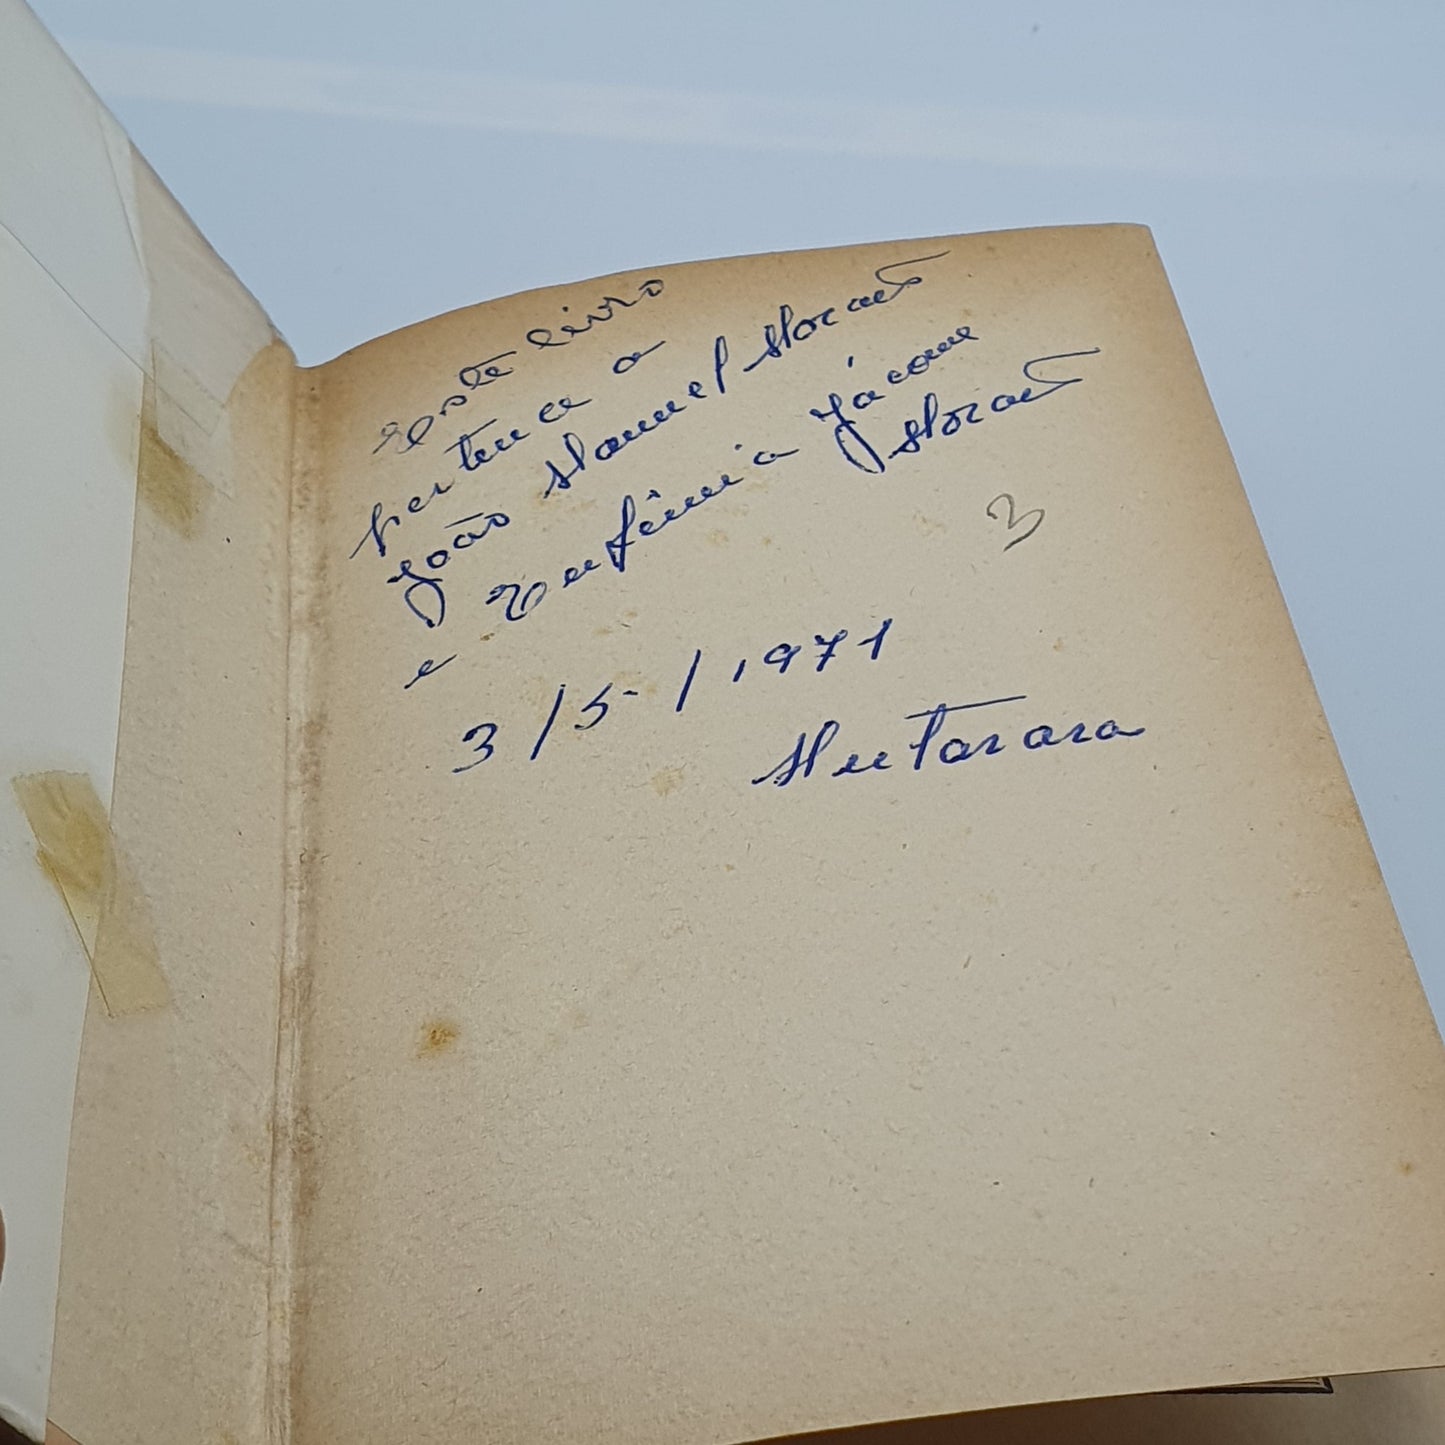 Este livro
pertence a
João Manuel Morais
e Eufêmia Jácome
Morais
3
3/5/1971
Mutarara